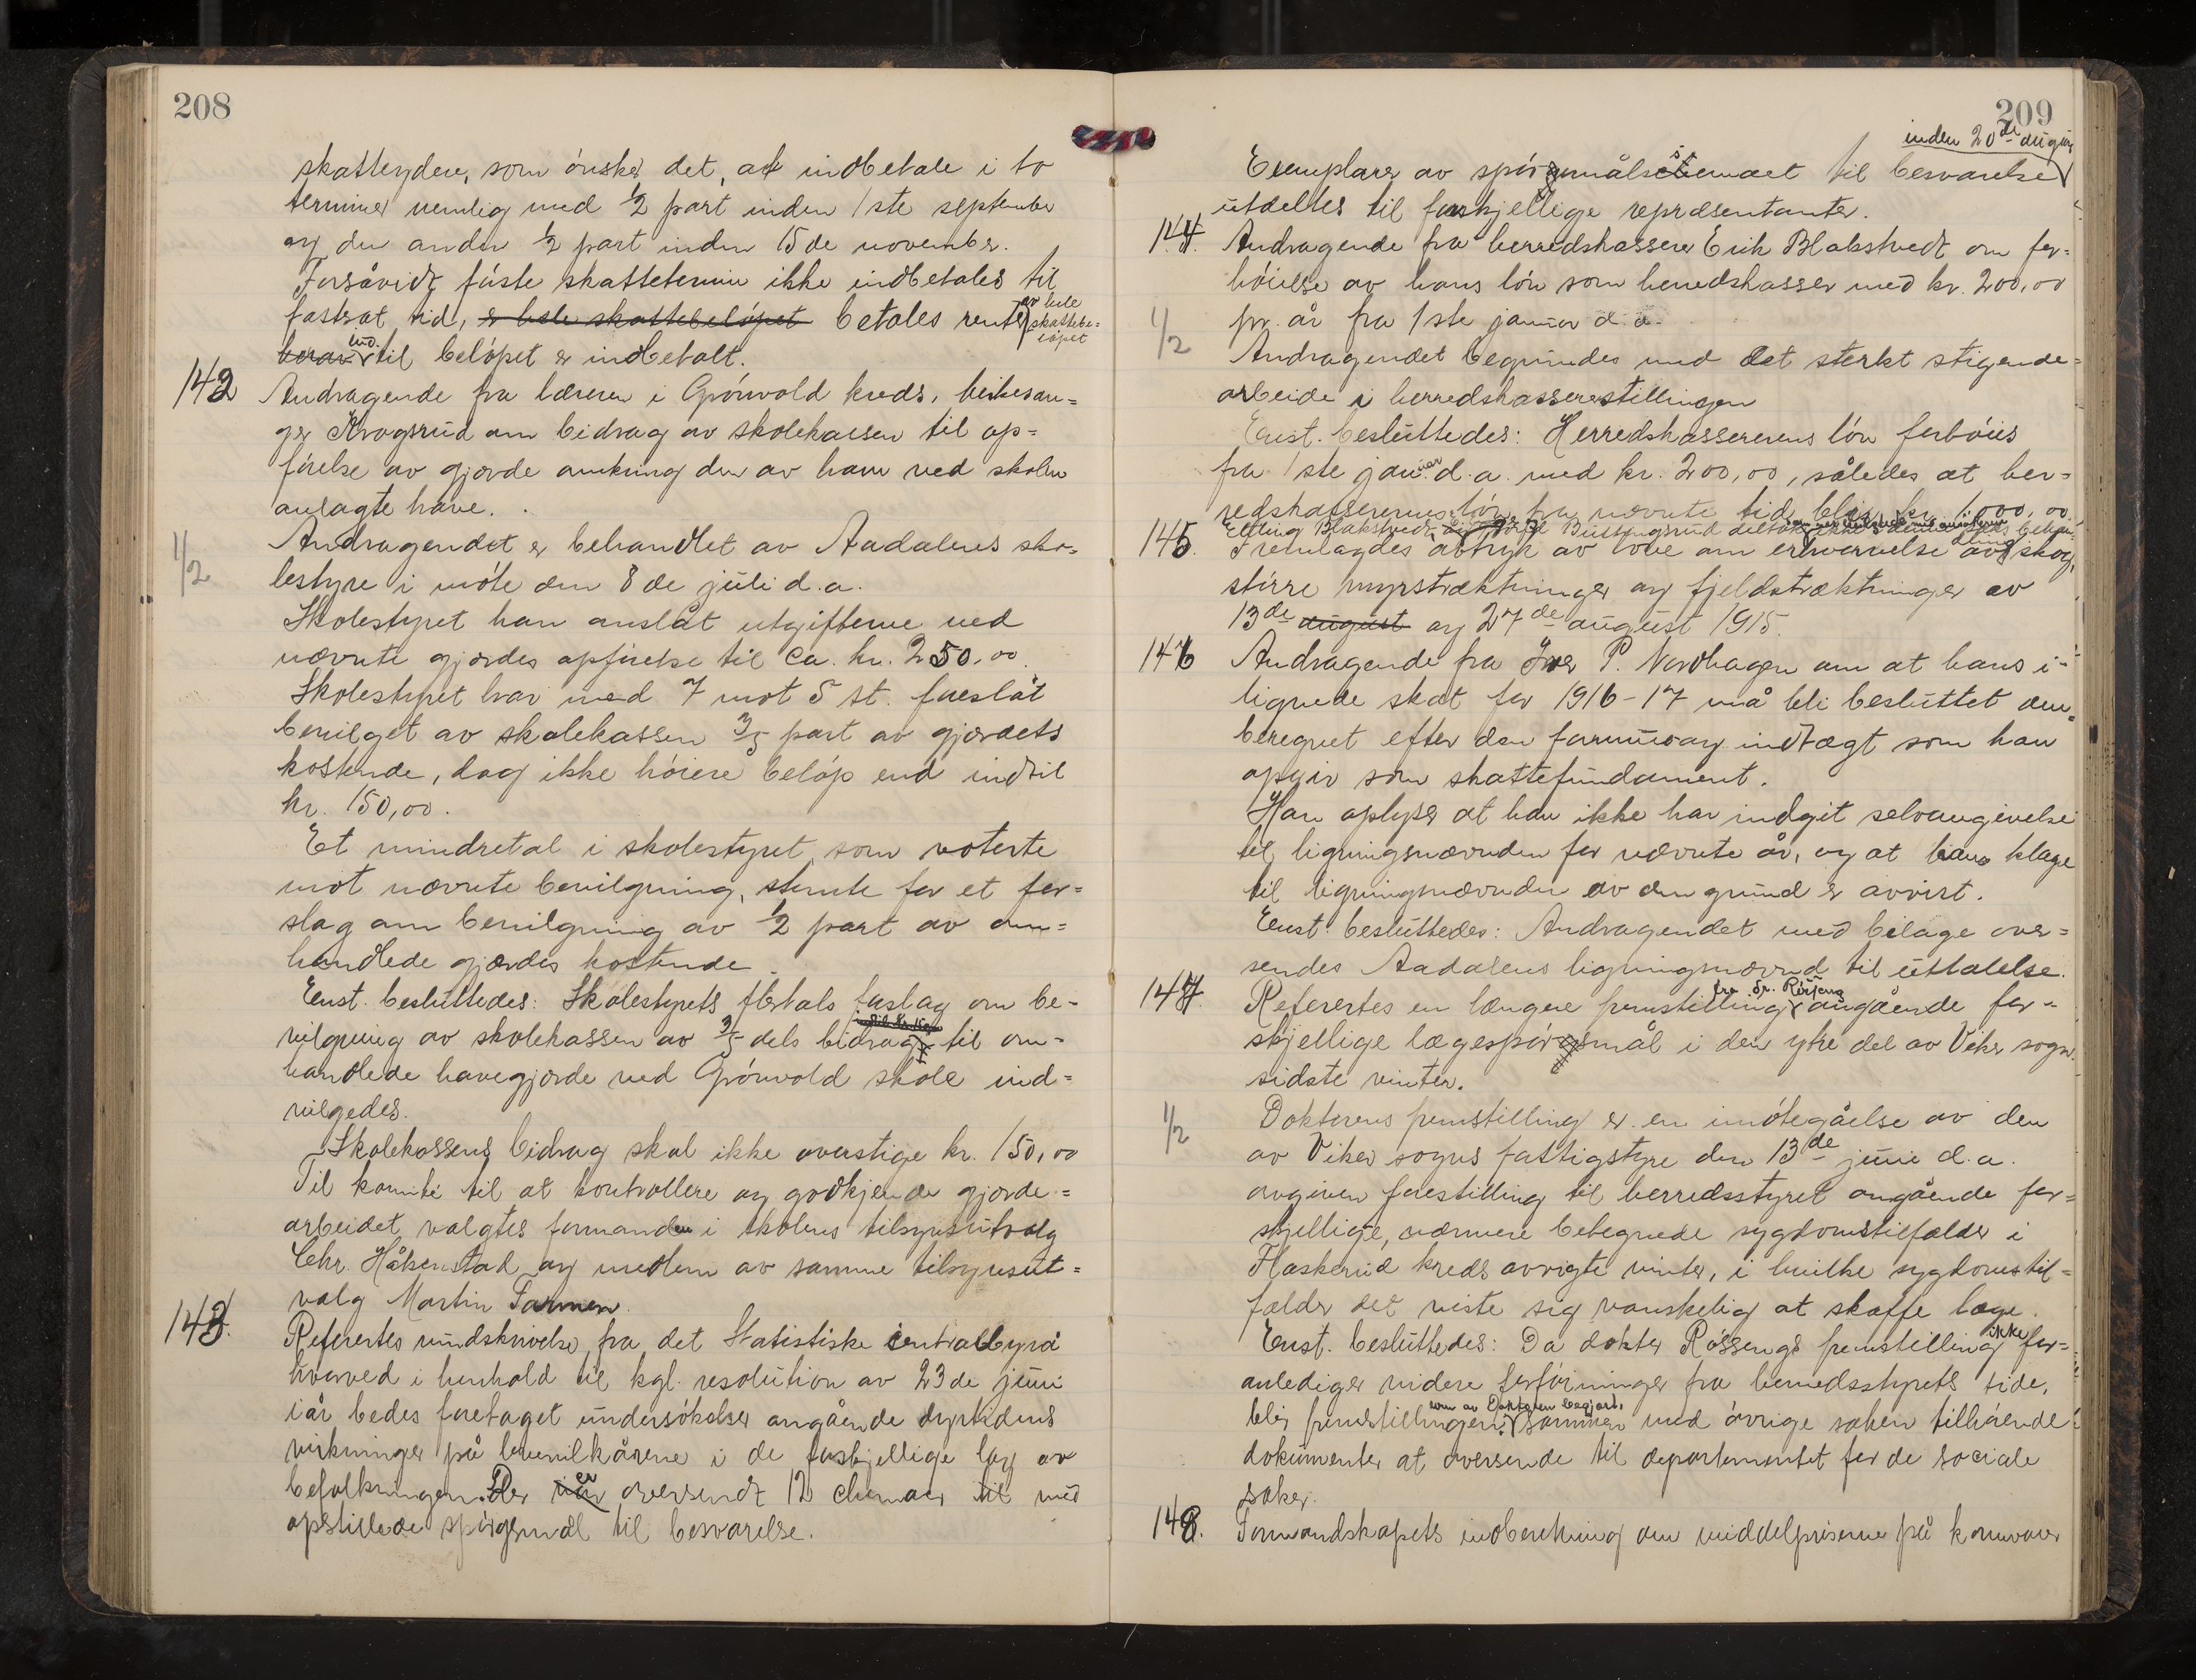 208
skatteydere, som ønsker det, at indbetale i to
terminer nemlig med 1/2 part inden 1ste september
og den anden 1/2 part inden 15de november.
Forsåvidt første skattetermin ikke indbetales til
fastsat tid, er hele skattebeløpet betales renter av hele skattebe=
løpet
herav ind til beløpet er indbetalt.
142 Andragende fra læreren i Grönvold kreds, kirkesan=
ger Krogsrud om bidrag av skolekassen til op=
førelse av gjærde omkring den av ham ved skolen
anlagte have.
1/2
Andragendet er behandlet av Aadalens sko=
lestyre i møte den 8de juli d.a.
Skolestyret han anslåt utgifterne ved
nævnte gjærdes opførelse til ca. kr. 250,00.
Skolestyret har med 7 mot 5 st. foreslåt
bevilget av skolekassen 3/5 part av gjærdets
kostende, dog ikke høiere beløp end indtil
kr. 150,00.
Et mindretal i skolestyret som voterte
mot nævnte bevilgning, stemte for et for=
slag om bevilgning av 1/2 part av om=
handlede gjærdes kostende.
Enst. besluttedes: Skolestyrets flertals forslag om be=
vilgning av skolekassen av 3/5 dels bidrag til om=
handlede havegjærde ved Grönvold skole ind=
vilgedes.
Skolekassens bidrag skal ikke overstige kr. 150,00
Til komite til at kontrollere og godkjende gjærde=
arbeidet valgtes formanden i skolens tilsynsutvalg
Chr. Håkenstad og medlem av samme tilsynsut=
valg Martin Tarmen.
143. Refertes rundskrivelse fra det Statistiske centralbyrå
hvorved i henhold til kgl. resolution av 23de juni
iår bedes foretaget undersøkelser angående dyrtidens
virkninger på levevilkårene i de forskjellige lag av
befolkningen. Der er oversendt 12 chemaer til med
opstillede spørgsmål til besvarelse.
209
inden 20de august
Exemplarer av spørgsmålsskemaet til besvarelse
utdeltes til forskjellige repræsentanter.
144. Andragende fra herredskasserer Erik Blakstvedt om for=
høielse av hans løn som herredskasser med kr. 200,00
1/2
pr. år fra 1ste januar d.a.
Andragendet begrundes med det sterkt stigende
arbeide i herredskassererstillingen
Enst. besluttedes: Herredskassererens løn forhøies
fra 1ste januar d.a. med kr. 200,00, således at her=
redskassererens løn fra nævnte tid blir kr. 1000,00.
Elling Blakstvedt Bustingsrud deltok ikke
145. Fremlagdes avtryk av love om erhvervelse av skog,
større myrstrækninger og fjeldstrækninger av
13de august og 27de august 1915.
146 Andragende fra Iver P. Nordhagen om at hans i=
lignede skat for 1916-17 må bli besluttet om=
beregnet efter den formue og indtægt som han
opgir som skattefundament.
Han oplyser at han ikke har indgit selvangivelse
til ligningsnævnden for nævnte år, og at hans klage
til ligningsnævnden av den grund er avvist.
Enst. besluttedes: Andragendet med bilage over=
sendes Aadalens ligningsnævnd til uttalelse.
147. Referertes en længere fremstilling fra Dr. Røsseng angående for=
skjellige lægespørgsmål i den ytre del av Viker sogn
sidste vinter.
1/2
Doktorens fremstilling er en imøtegåelse av den
av Viker sogns fattigstyre den 13de juni d.a.
avgiven forestilling til herredsstyret angående for=
skjellige, nærmere betegnede sygdomstilfælder i
Flaskerud kreds avvigte vinter, i hvilke sygdomstil=
fælder det viste sig vanskelig at skaffe læge.
Enst. besluttedes: Da doktor Røssengs fremstilling ikke for=
anlediger videre forføininger fra herredsstyrets side,
blir fremstillingen, som av Doktoren begjært, sammen med øvrige saken tilhørende
dokumenter at oversende til departementet for de sociale
saker.
148. Formandskapets indberetning om middelpriserne på kornvarer